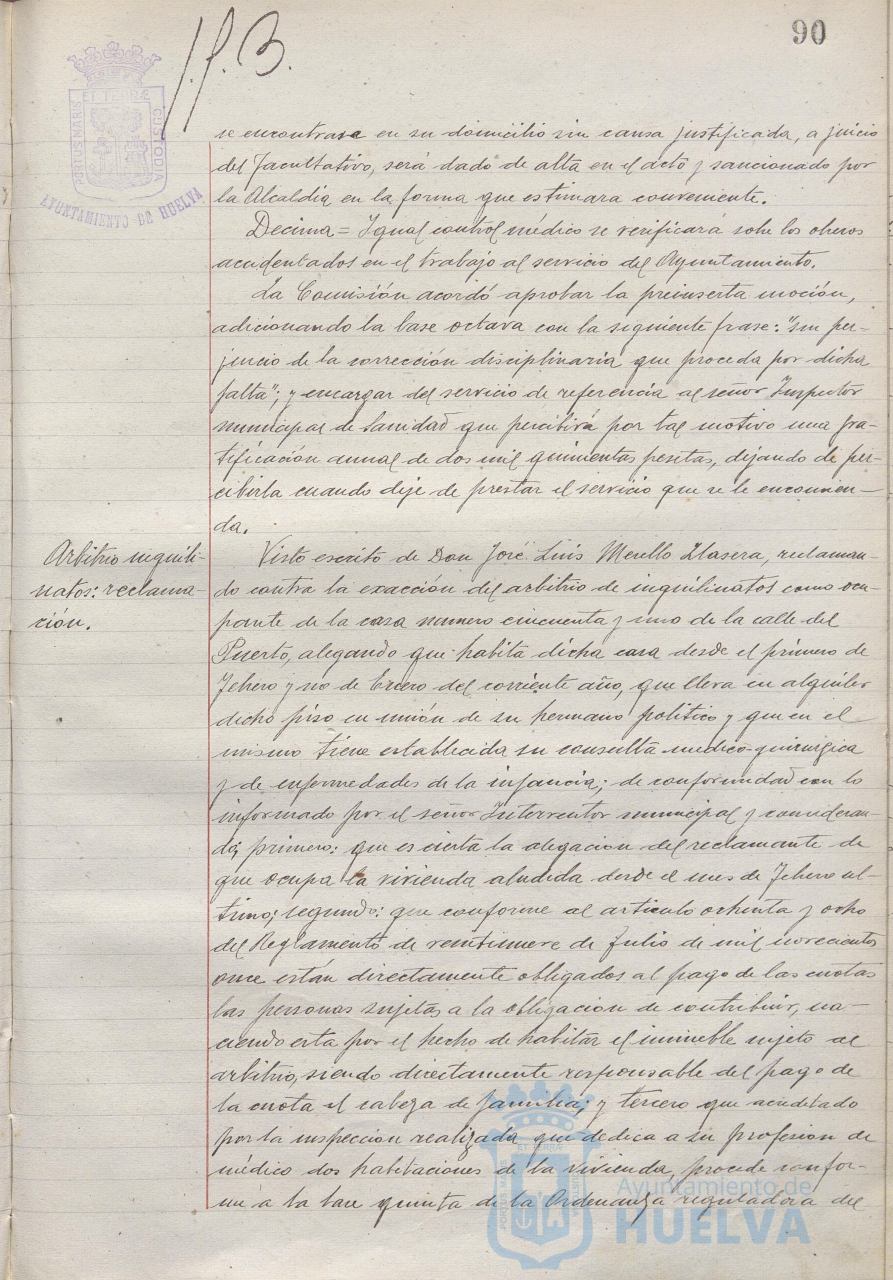 90
se encontrase en su domicilio sin causa justificada, a juicio
del Facultativo, será dado de alta en el acto y sancionado por
la Alcaldía en la forma que estimara conveniente.
Decima = Igual control médico se verificará sobre los obreros
accidentados en el trabajo al servicio del Ayuntamiento.
La Comisión acordó aprobar la preinserta moción,
adicionando la base octava con la siguiente frase: "sin per-
juicio de la corrección disciplinaria que proceda por dicha
falta"; y encargar del servicio de referencia al señor Inspector
municipal de Sanidad que percibirá por tal motivo una gra-
tificación anual de dos mil quinientas pesetas, dejando de per-
cibirla cuando deje de prestar el servicio que se le encomien-
da.
Arbitrio inquili-
natos: reclama-
ción.
Visto escrito de Don José Luis Merello Llasera, reclaman-
do contra la exacción del arbitrio de inquilinatos como ocu-
pante de la casa numero cincuenta y uno de la calle del
Puerto, alegando que habita dicha casa desde el primero de
Febrero y no de Enero del corriente año, que lleva en alquiler
dicho piso en unión de su hermano político y que en el
mismo tiene establecida su consulta medico-quirurgica
y de enfermedades de la infancia; de conformidad con lo
informado por el señor Interventor municipal y consideran-
do; primero: que es cierta la alegación del reclamante de
que ocupa la vivienda aludida desde el mes de Febrero ul-
timo; segundo: que conforme al articulo ochenta y ocho
del Reglamento de veintinueve de Julio de mil novecientos
once están directamente obligados al pago de las cuotas
las personas sujetas a la obligación de contribuir, na-
ciendo esta por el hecho de habitar el inmueble sujeto al
arbitrio, siendo directamente responsable del pago de
la cuota el cabeza de familia; y tercero que acreditado
por la inspección realizada que dedica a su profesion de
médico dos habitaciones de la vivienda, procede confor-
me a la base quinta de la Ordenanza reguladora del
PORTUS MARIS
ET TERRÆ
CUSTODIA
AYUNTAMIENTO DE HUELVA
Ayuntamiento de
HUELVA